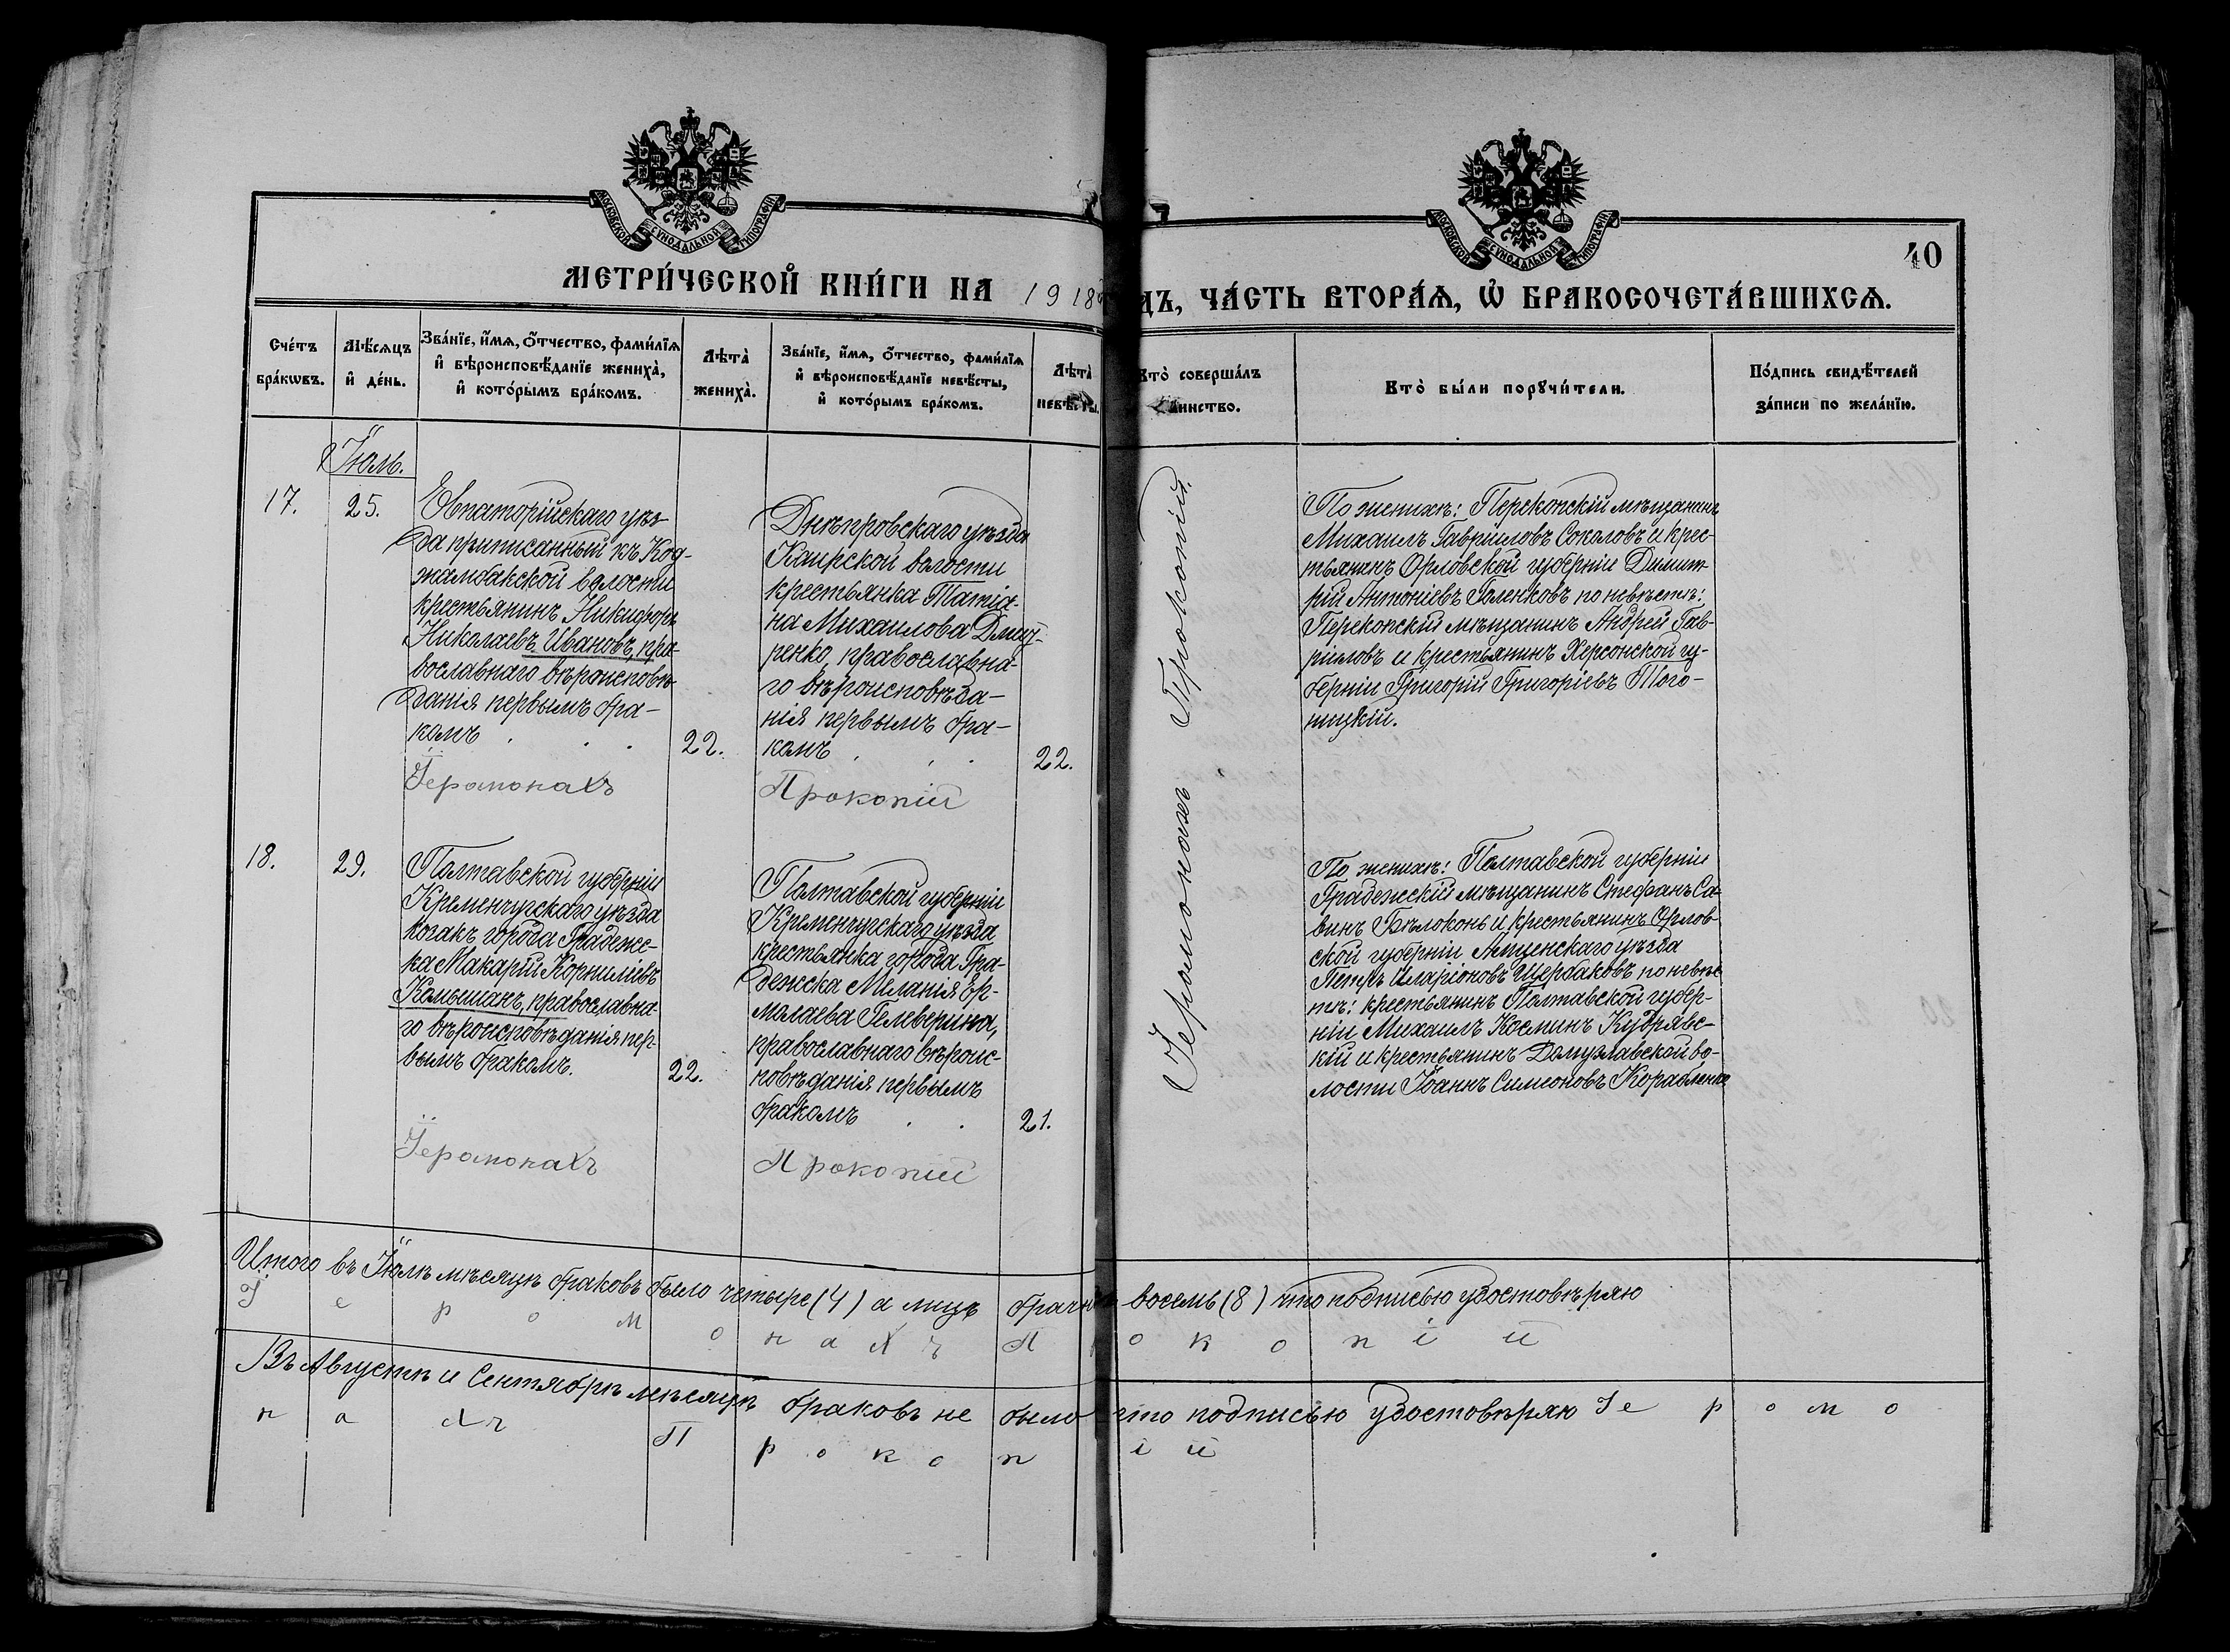 МОСКОВСКОЙ СѴНОДАЛЬНОЙ ТИПОГРАФІИ
МОСКОВСКОЙ СѴНОДАЛЬНОЙ ТИПОГРАФІИ
40
МЕТРИ́ЧЕСКОЙ КНИ́ГИ НА 1918 ДЪ, ЧА́СТЬ ВТОРА́Ѧ, Ѡ҆ БРАКОСОЧЕТА́ВШИХСѦ.
Сче́тъ бра́кѡвъ.
Мѣ́сѧцъ и҆ де́нь.
Зва́нїе, и҆́мѧ, ѻ҆́тчество, фами́лїѧ и҆ вѣроисповѣ́данїе женихà, и҆ кото́рымъ бра́комъ.
Лѣтà женихà.
Зва́нїе, и҆́мѧ, ѻ҆́тчество, фами́лїѧ и҆ вѣроисповѣ́данїе невѣ́сты, и҆ кото́рымъ бра́комъ.
Лѣтà невѣ́сты.
Ктò соверша́лъ таинство.
Ктò бы́ли порꙋчи́тели.
По́дпись свидѣ́телей за́писи по жела́нїю.
Іюль.
17.
25.
Евпаторійскаго уѣз-
да приписанный къ Код-
жамбакской волости
крестьянинъ Никифоръ
Николаевъ Ивановъ, пра-
вославнаго вѣроисповѣ-
данія первымъ бра-
комъ . . .
22.
Іеромонахъ
Днѣпровскаго уѣзда
Каирской волости
крестьянка Татіа-
на Михаилова Дмит-
ренко, православна-
го вѣроисповѣда-
нія первымъ бра-
комъ . . .
22.
Прокопій
Іеромонахъ Прокопій.
По женихѣ: Перекопскій мѣщанинъ
Михаилъ Гавріиловъ Соколовъ и крес-
тьянинъ Орловской губерніи Димит-
рій Антоніевъ Голенковъ по невѣстѣ:
Перекопскій мѣщанинъ Андрей Гав-
ріиловъ и крестьянинъ Херсонской гу-
берніи Григорій Григоріевъ Того-
ницкій.
18.
29.
Полтавской губерніи
Кременчугскаго уѣзда
козакъ города Градиж-
ка Макарій Корниліевъ
Комышанъ, православна-
го вѣроисповѣданія пер-
вымъ бракомъ.
22.
Іеромонахъ
Полтавской губерніи
Кременчугскаго уѣзда
крестьянка города Гра-
дежска Меланія Ер-
молаева Гелеверина,
православнаго вѣроис-
повѣданія первымъ
бракомъ . .
21.
Прокопій
По женихѣ: Полтавской губерніи
Градежскій мѣщанинъ Стефанъ Са-
винъ Бѣлоконь и крестьянинъ Орлов-
ской губерніи Мценскаго уѣзда
Петръ Иларіоновъ Щербаковъ по невѣс-
тѣ: крестьянинъ Полтавской губер-
ніи Михаилъ Косминъ Кудрявс-
кій и крестьянинъ Домузлавской во-
лости Іоаннъ Симеоновъ Корабленко
Итого въ Іюлѣ мѣсяцѣ браковъ было четыре (4) а лицъ брачн восемь (8) что подписью удостовѣряю
Іеромонахъ Прокопій
Въ Августѣ и Сентябрѣ мѣсяцѣ браковъ не было что подписью удостовѣряю Іеромо
нахъ Прокопій